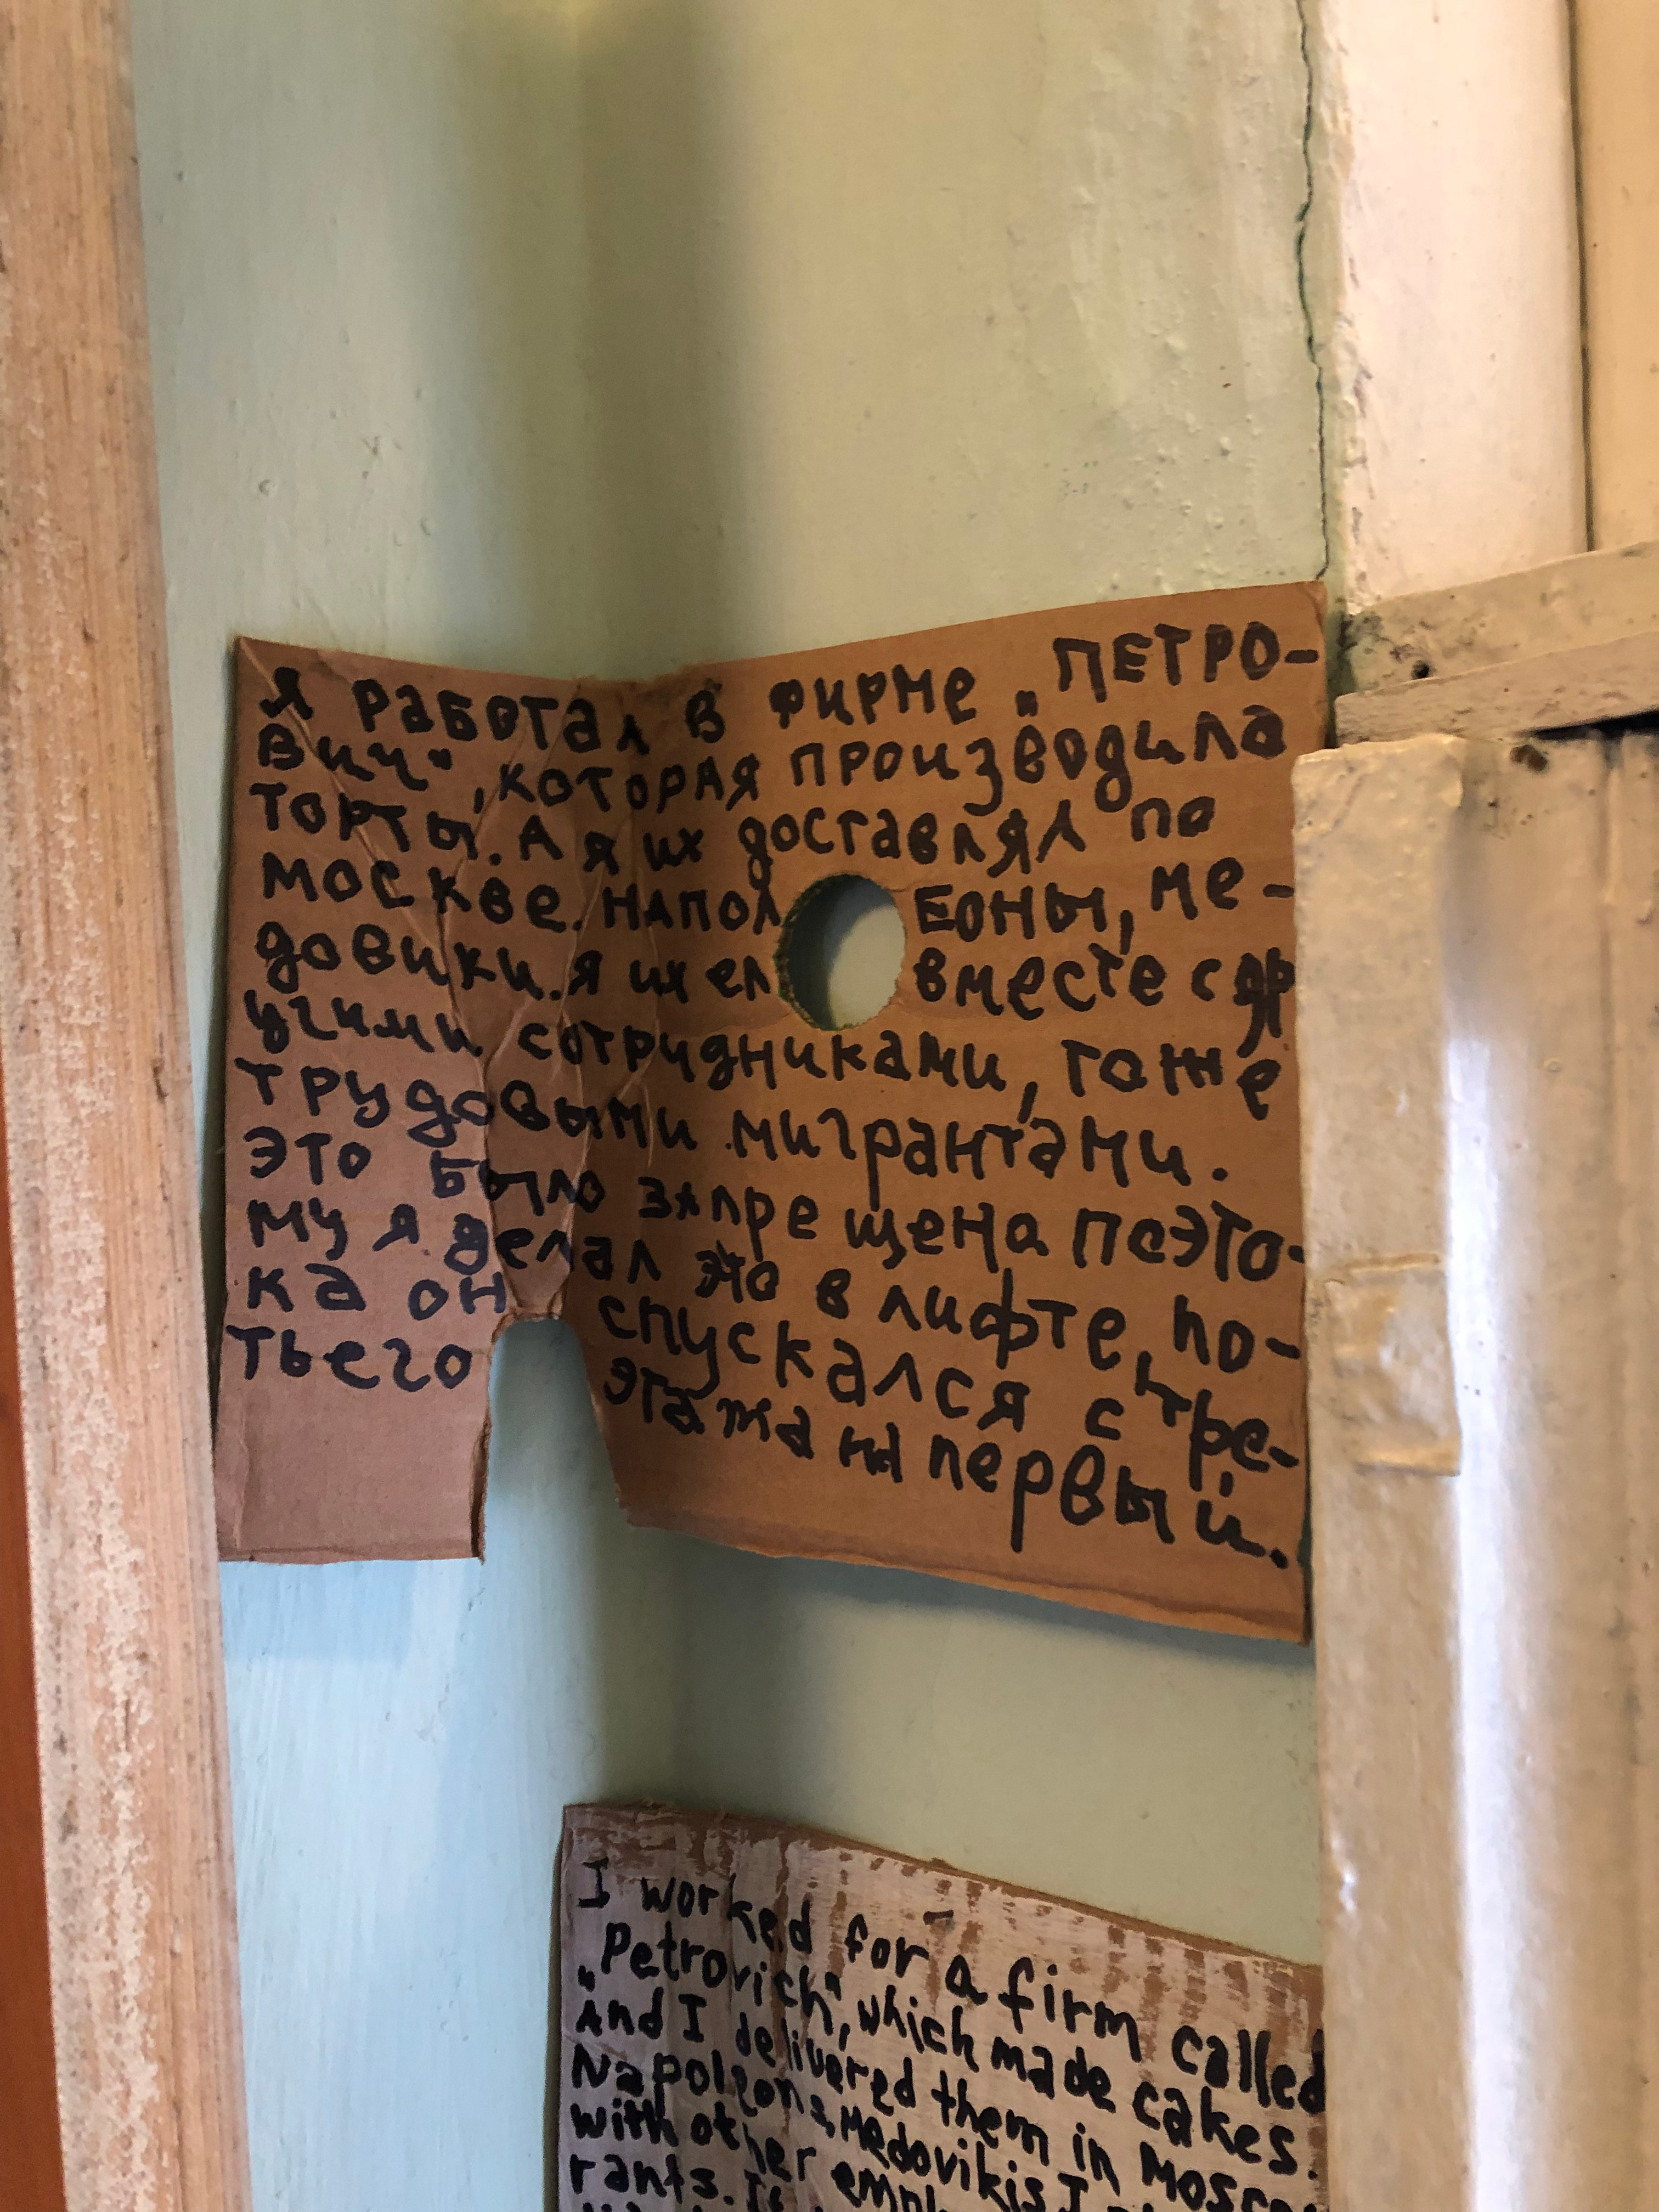 Я РАБОТАЛ В ФИРМЕ „ПЕТРО-
ВИЧ", КОТОРАЯ ПРОИЗВОДИЛА
ТОРТЫ. А Я ИХ ДОСТАВЛЯЛ ПО
МОСКВЕ. НАПОЛ ЕОНЫ, МЕ-
ДОВИКИ. Я ИХ ЕЛ ВМЕСТЕ С ДР
УГИМИ СОТРУДНИКАМИ, ТОЖЕ
ТРУДОВЫМИ МИГРАНТАМИ.
ЭТО БЫЛО ЗАПРЕЩЕНО ПОЭТО-
МУ Я ДЕЛАЛ ЭТО В ЛИФТЕ, ПО-
КА ОН СПУСКАЛСЯ С ТРЕ-
ТЬЕГО ЭТАЖА НА ПЕРВЫЙ.
I worked for a firm called
„Petrovich", which made cakes.
And I delivered them in
Napoleons, Medovikis I
with other
rants. It